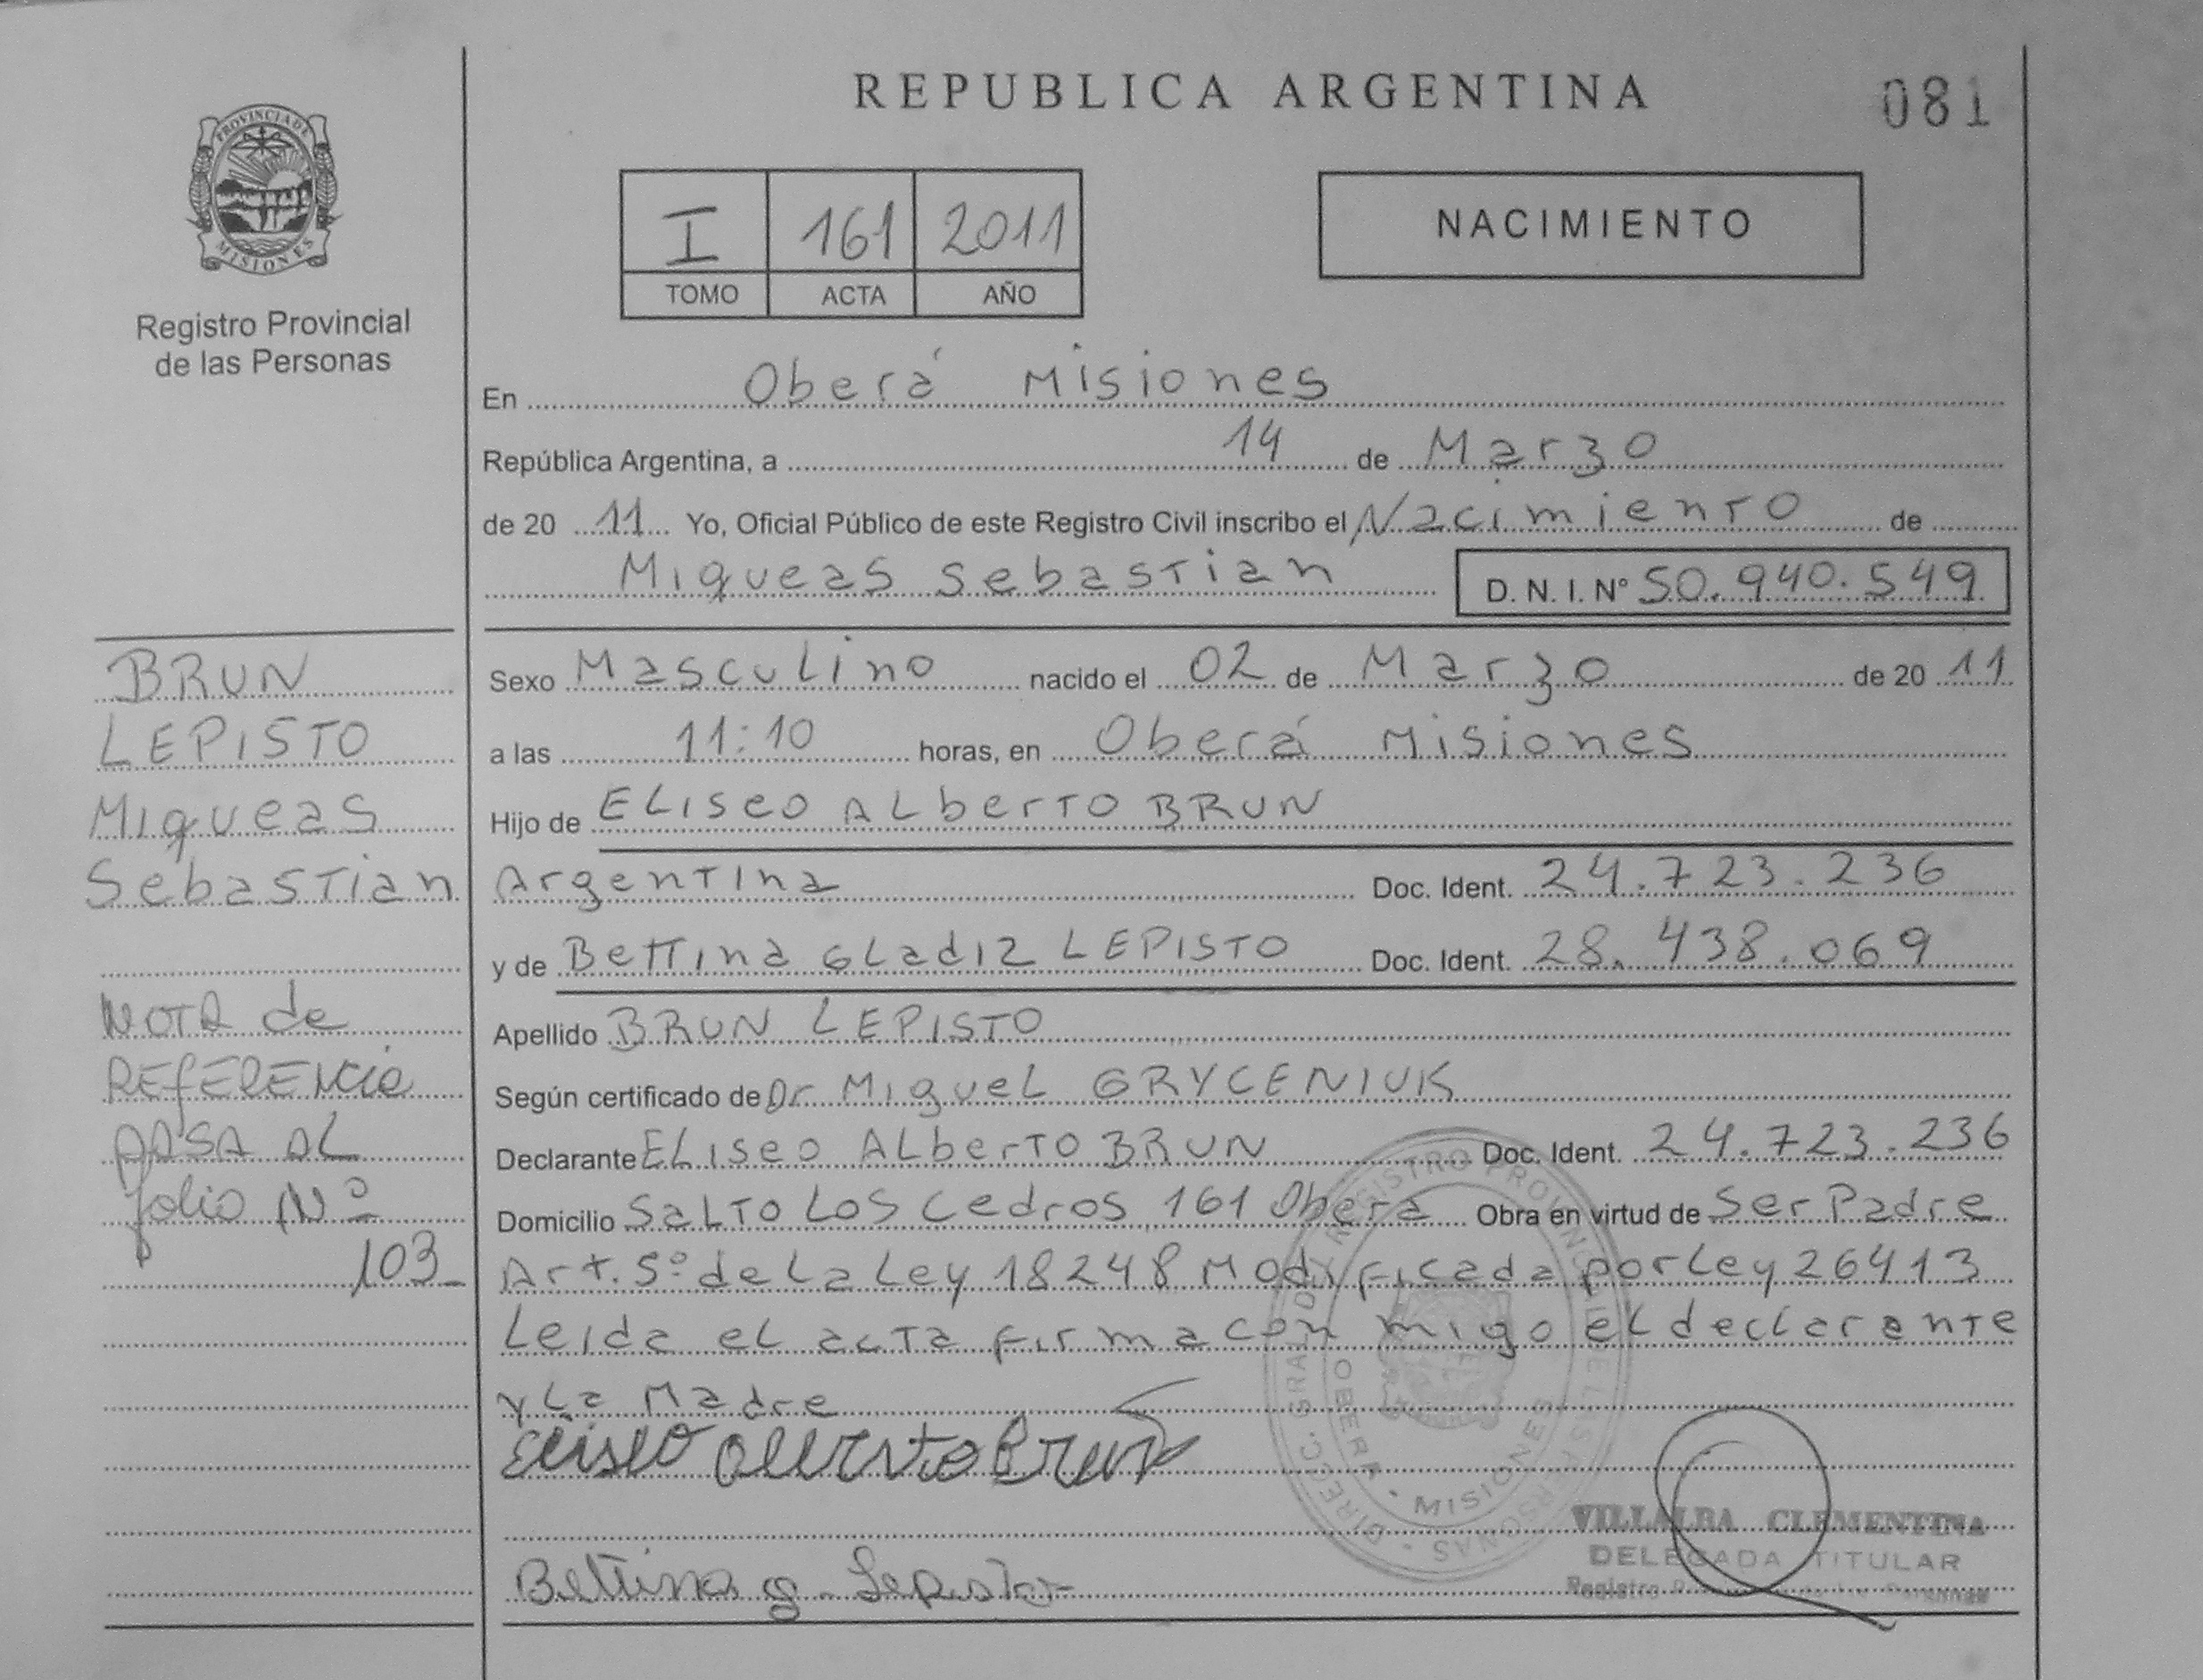 REPUBLICA ARGENTINA
081
PROVINCIA DE
MISIONES
Registro Provincial
de las Personas
I 161 2011
TOMO ACTA AÑO
NACIMIENTO
En Oberá Misiones
República Argentina, a 14 de Marzo
de 20 11 Yo, Oficial Público de este Registro Civil inscribo el Nacimiento de
Miqueas Sebastian D. N. I. Nº 50.940.549
BRUN
LEPISTO
Miqueas
Sebastian
NOTA de
REFERENcia
PASA AL
folio Nº
103
Sexo Masculino nacido el 02 de Marzo de 20 11
a las 11:10 horas, en Oberá Misiones
Hijo de ELiseo ALberTO BRUN
Argentina Doc. Ident. 24.723.236
y de Bettina GLadiz LEPISTO Doc. Ident. 28.438.069
Apellido BRUN LEPISTO
Según certificado de Dr Miguel GRYCENIUK
Declarante ELiseo ALberTO BRUN Doc. Ident. 24.723.236
Domicilio SaLTO LOS Cedros 161 Oberá Obra en virtud de Ser Padre
Art. 5º de La Ley 18248 Modificada por Ley 26413
Leida el acta firma con migo el declarante
y La Madre
Eliseo Alberto Brun
Bettina G. Lepisto
DIRECC. GRAL. DEL REGISTRO PROVINCIAL DE LAS PERSONAS
OBERA • MISIONES
VILLALBA CLEMENTINA
DELEGADA TITULAR
Registro